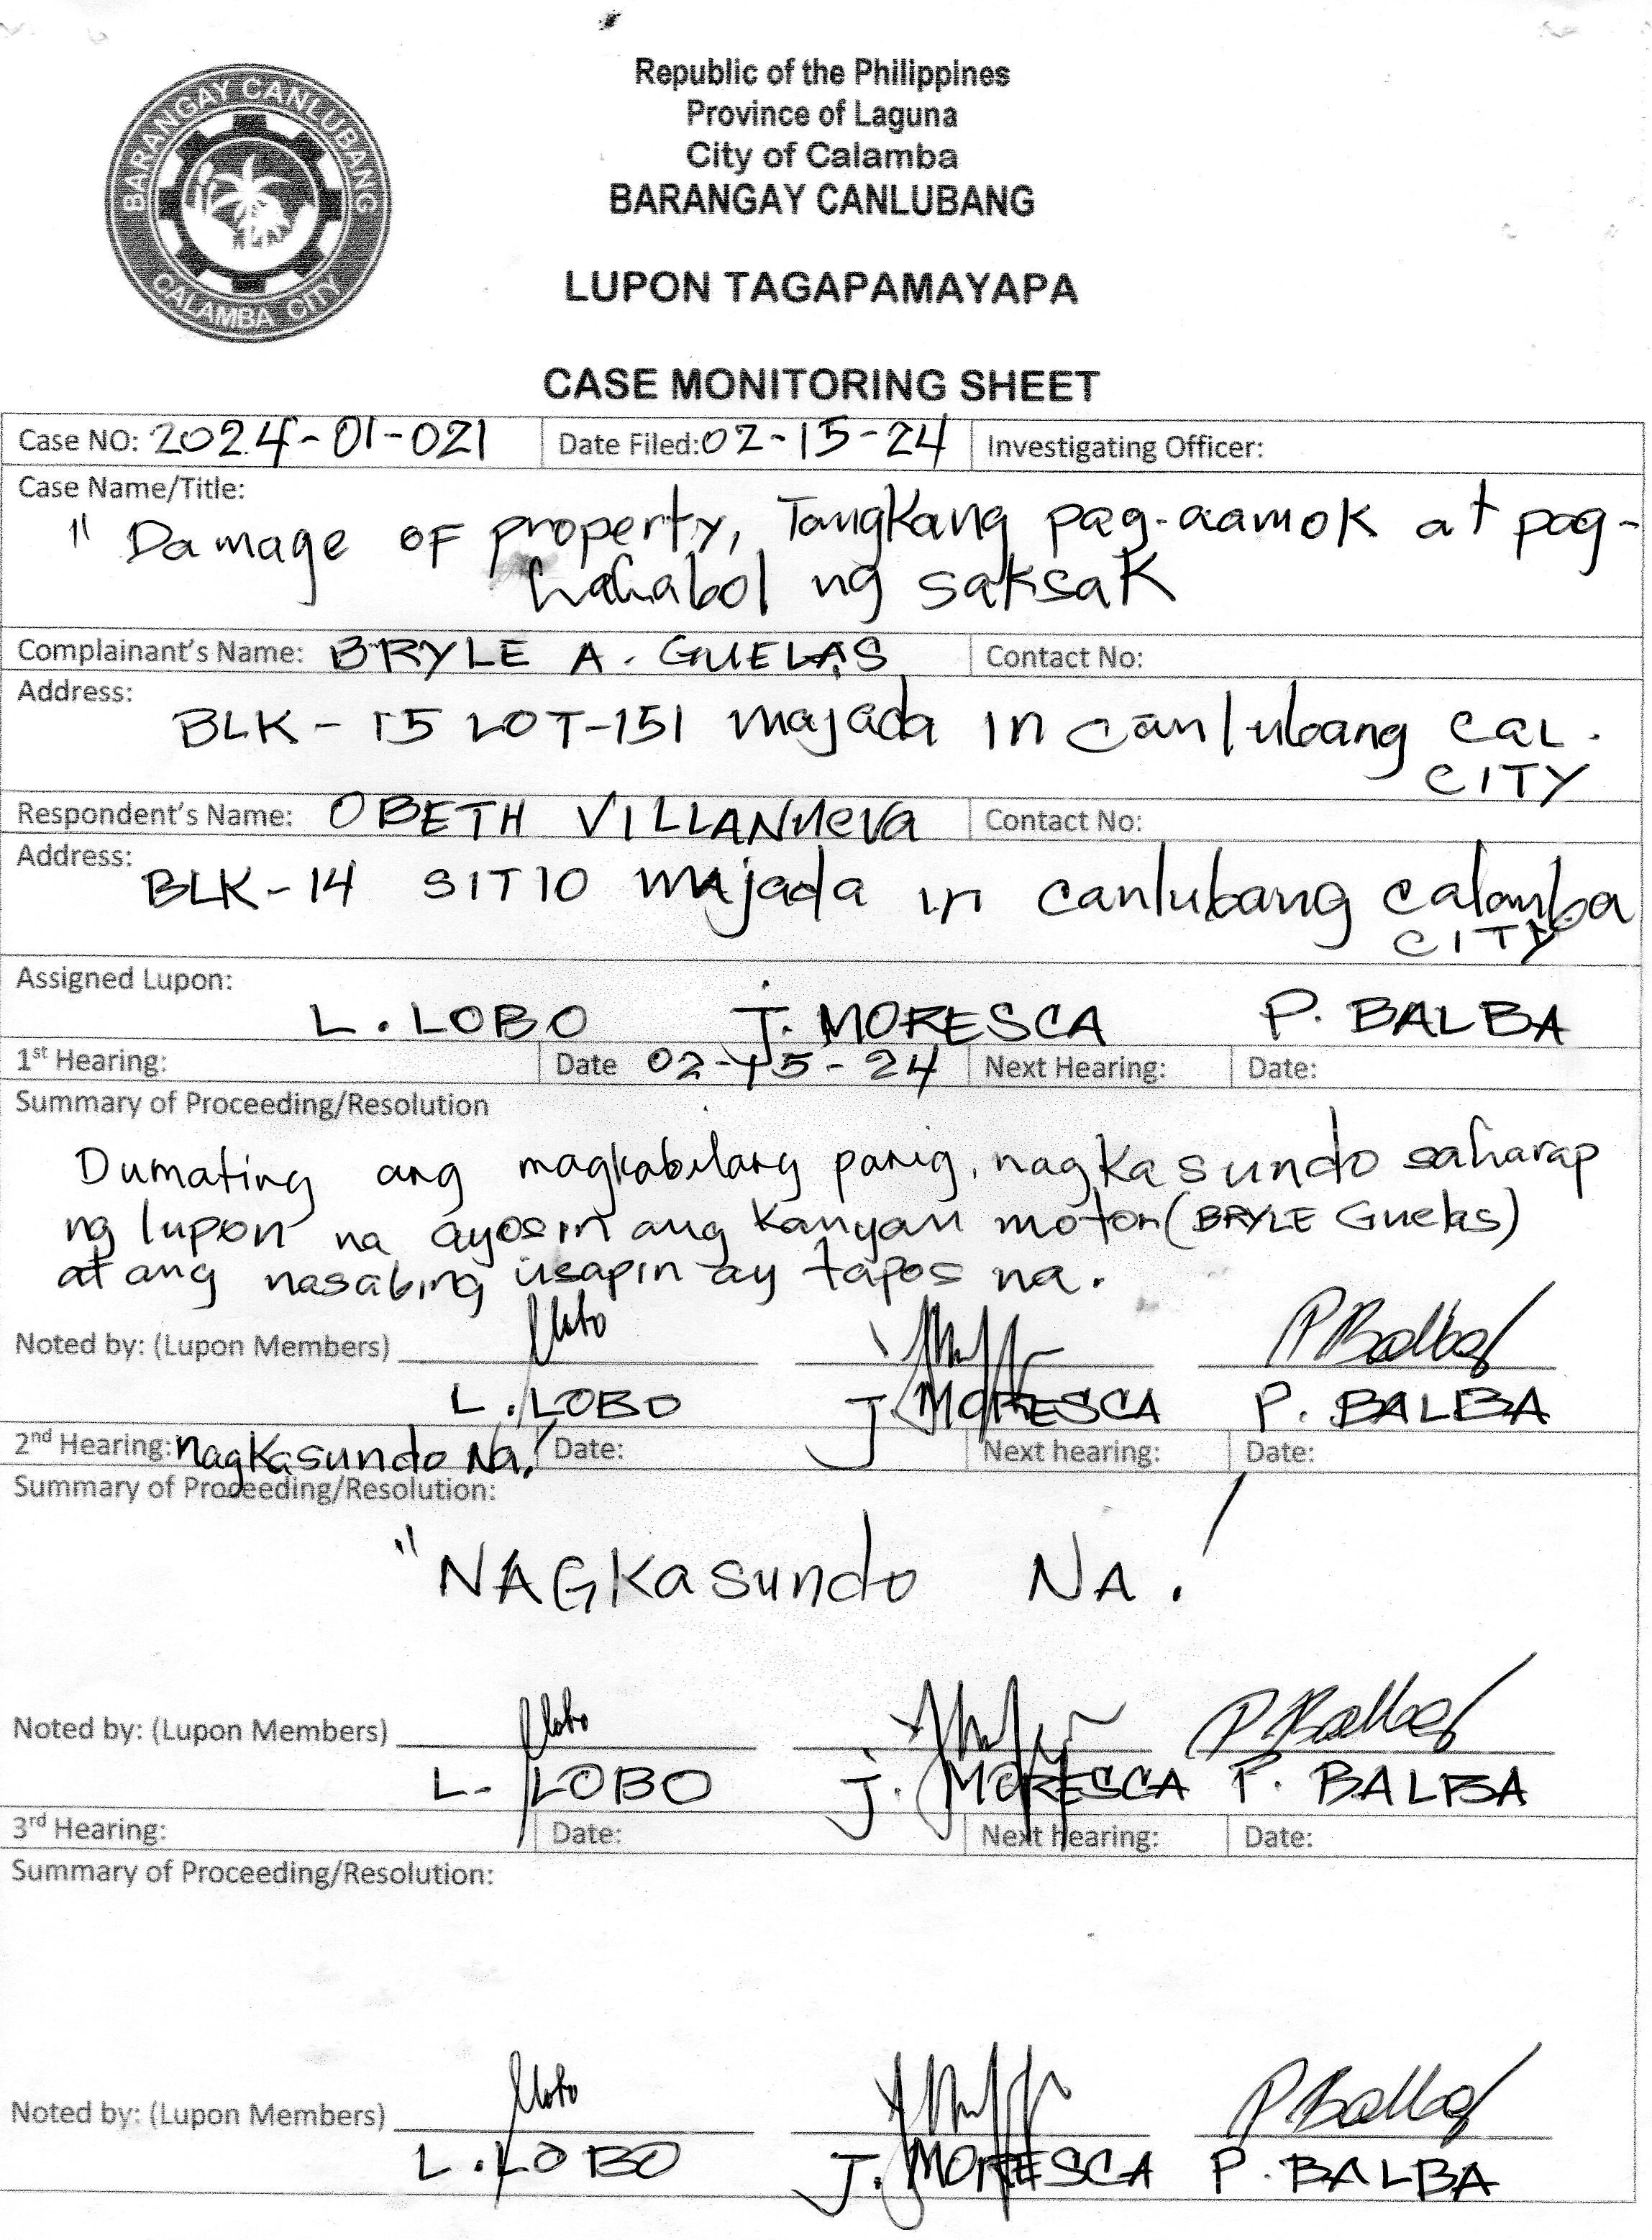 BARANGAY CANLUBANG
CALAMBA CITY
Republic of the Philippines
Province of Laguna
City of Calamba
BARANGAY CANLUBANG
LUPON TAGAPAMAYAPA
CASE MONITORING SHEET
Case NO: 2024-01-021 Date Filed: 02-15-24 Investigating Officer:
Case Name/Title:
" Damage OF property, Tangkang pag-aamok at pag-
hahabol ng saksak
Complainant's Name: BRYLE A. GUELAS Contact No:
Address:
BLK-15 LOT-151 majada in canlubang CAL.
CITY
Respondent's Name: OBETH VILLANUEVA Contact No:
Address:
BLK-14 SITIO majada in canlubang calamba
CITY
Assigned Lupon:
L. LOBO J. MORESCA P. BALBA
1st Hearing: Date 02-15-24 Next Hearing: Date:
Summary of Proceeding/Resolution
Dumating ang magkabilang panig, nagkasundo saharap
ng lupon na ayosin ang kanyan motor (BRYLE Guelas)
at ang nasabing usapin ay tapos na.
Noted by: (Lupon Members) Llobo PBalba
L. LOBO J. MORESCA P. BALBA
2nd Hearing: nagkasundo Na! Date: Next hearing: Date:
Summary of Proceeding/Resolution:
"NAGKasundo NA!
Noted by: (Lupon Members) Llobo P.Balba
L. LOBO J. MORESCA P. BALBA
3rd Hearing: Date: Next hearing: Date:
Summary of Proceeding/Resolution:
Noted by: (Lupon Members) Llobo PBalba
L. LOBO J. MORESCA P. BALBA